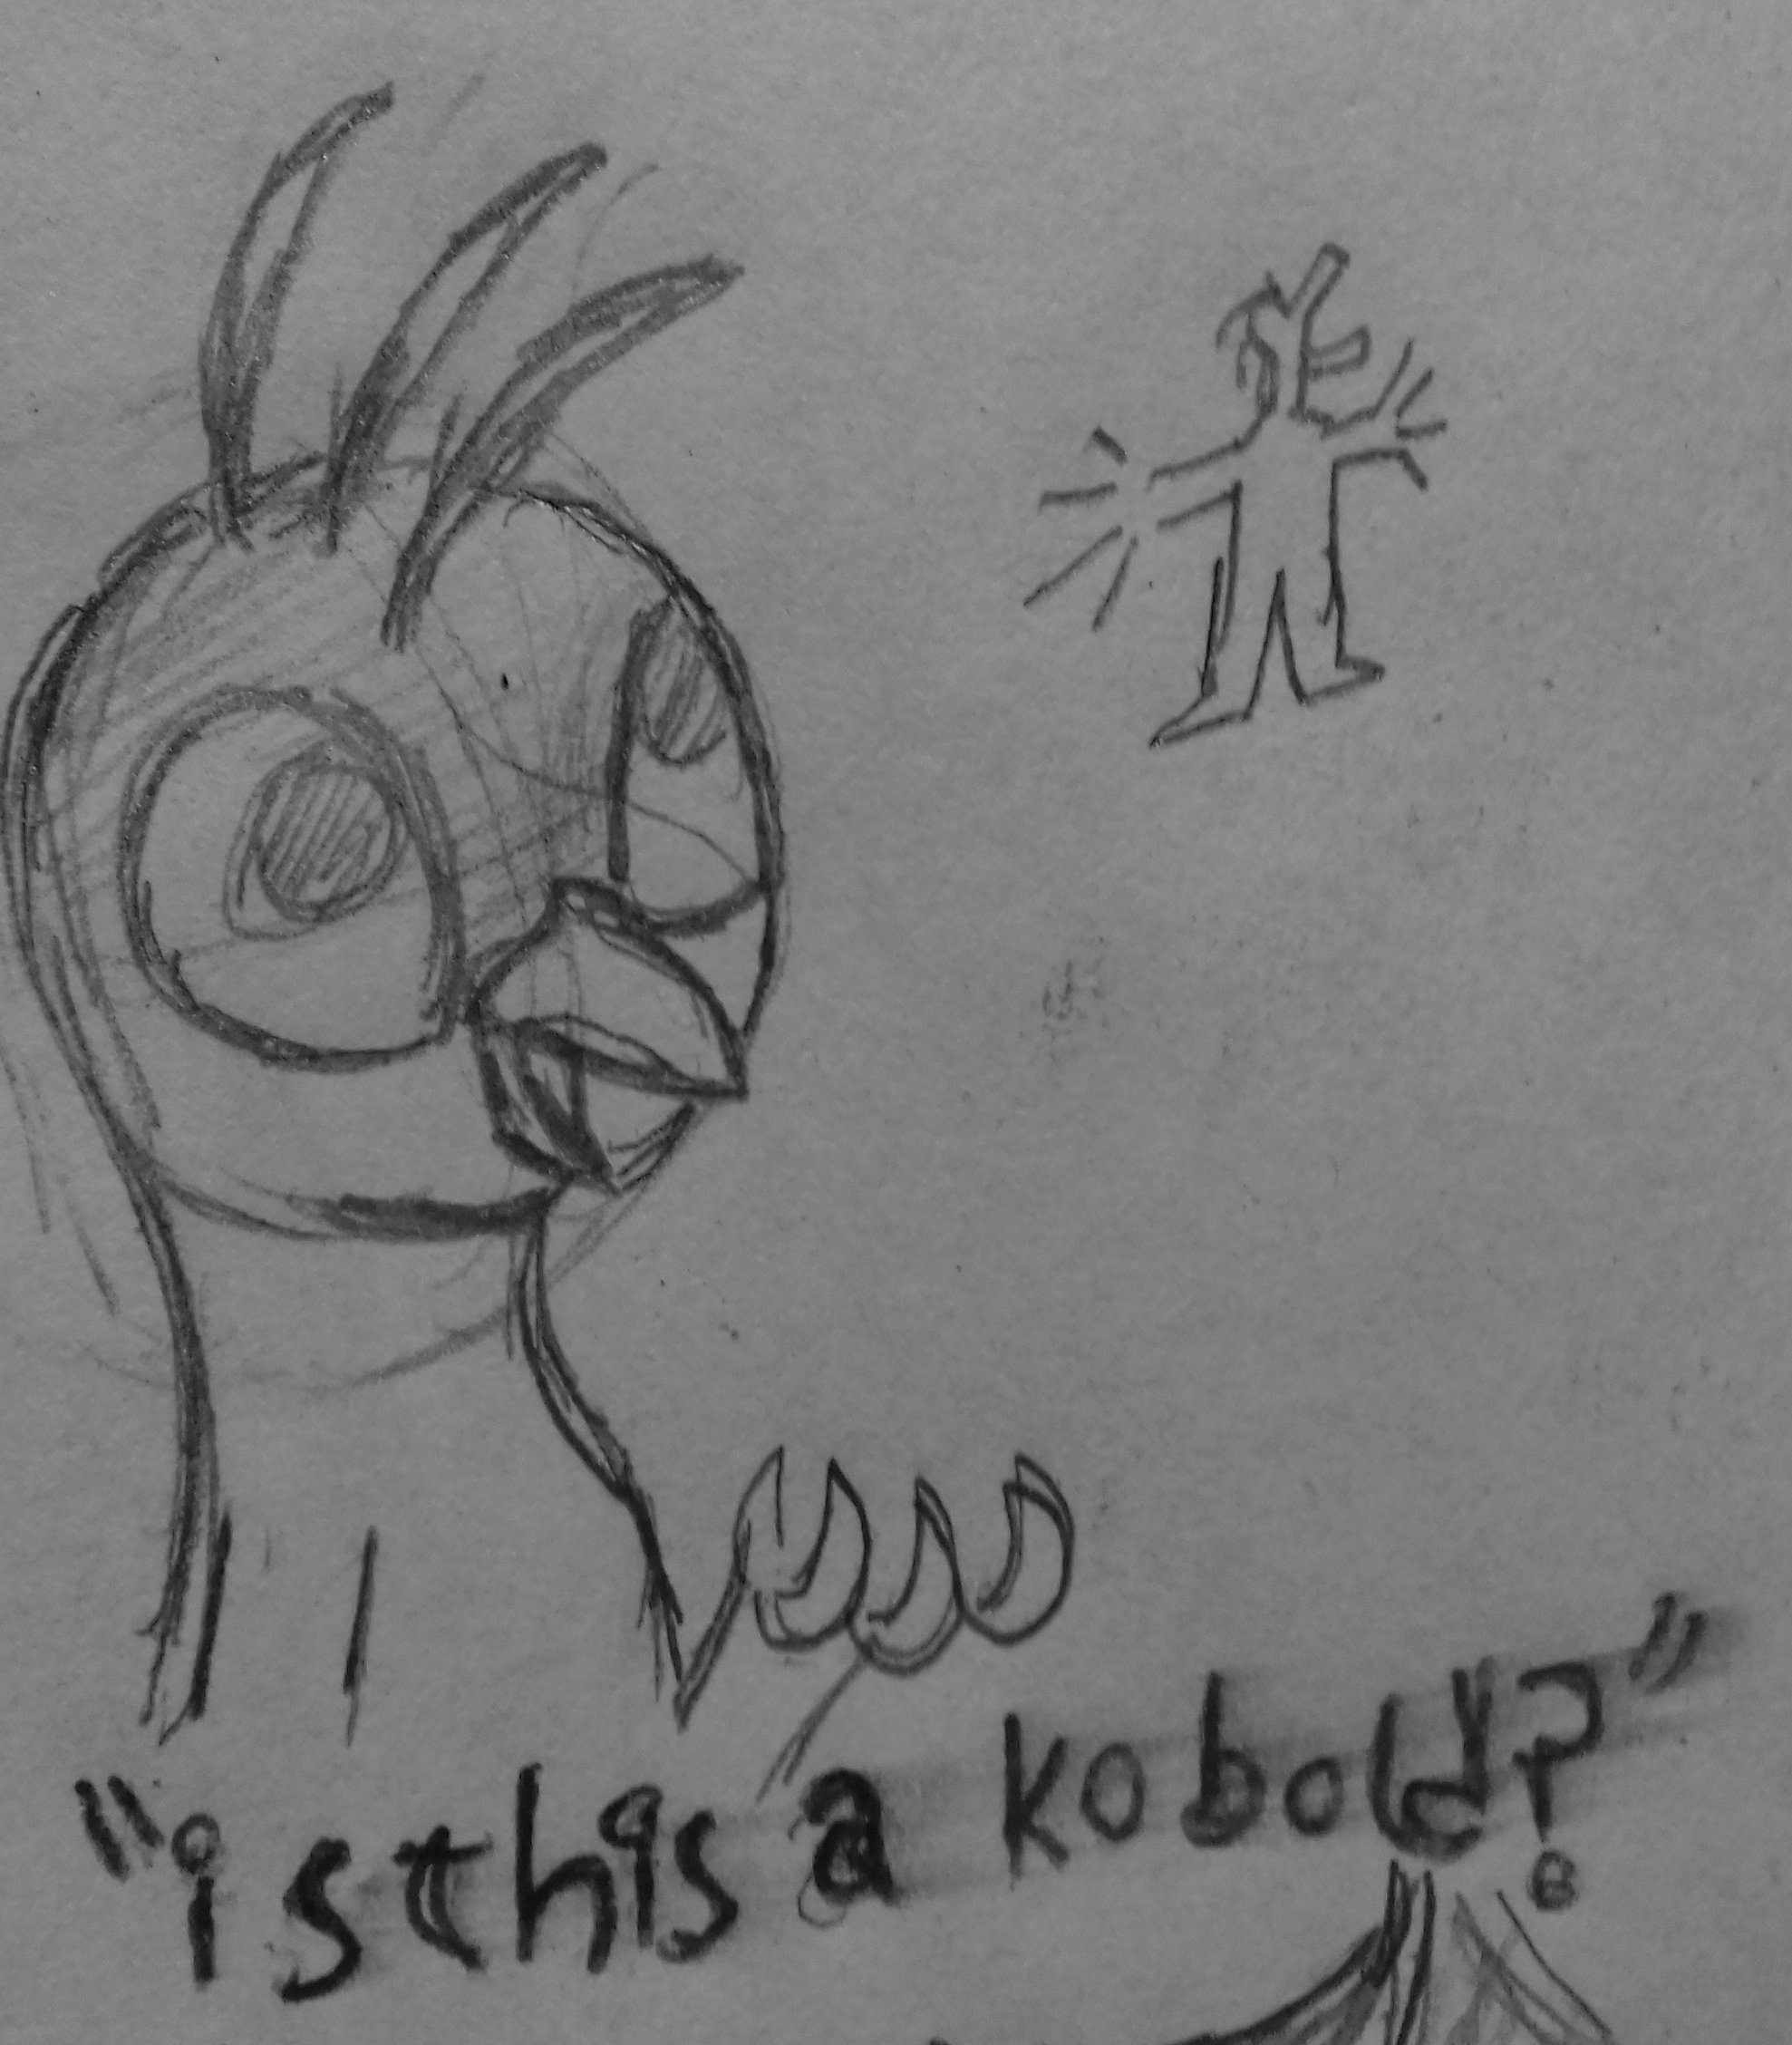 "is this a kobold?"